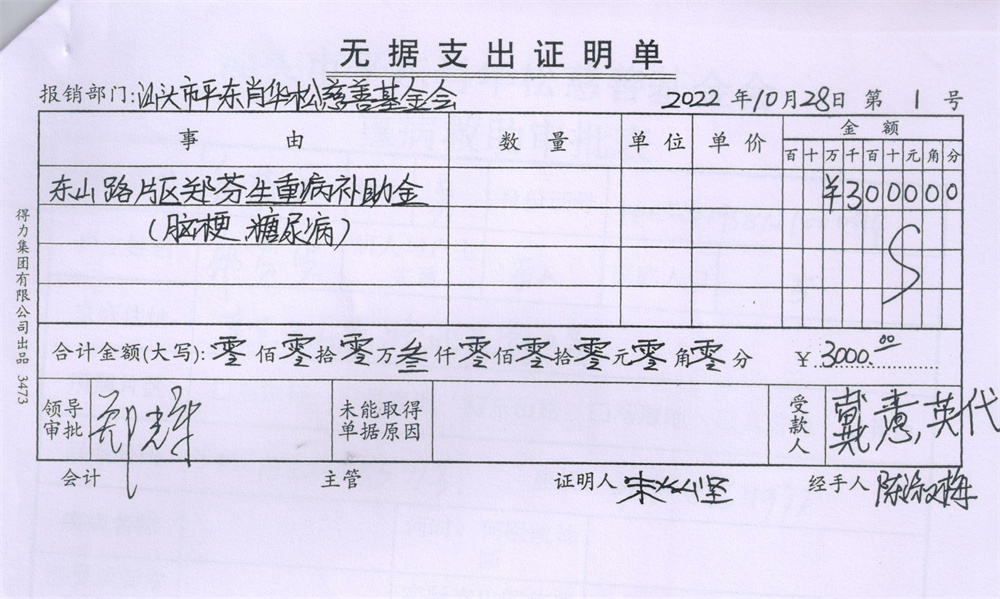 无据支出证明单
报销部门: 汕头市平东肖华松慈善基金会 2022年10月28日 第 1 号
事由 数量 单位 单价 金额
百 十 万 千 百 十 元 角 分
东山路片区郑芬生重病补助金 ¥300000
(脑梗、糖尿病)
合计金额(大写): 零佰零拾零万叁仟零佰零拾零元零角零分 ¥3000.00
领导审批 未能取得单据原因 受款人 戴惠英代
会计 主管 证明人 经手人
得力集团有限公司出品 3473